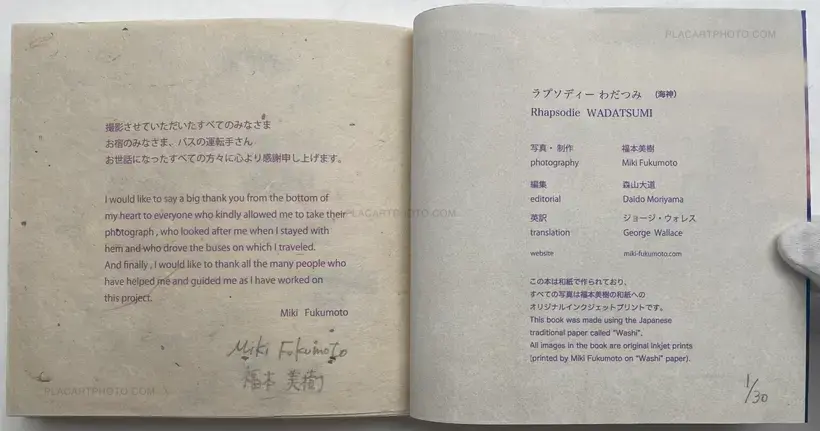 撮影させていただいたすべてのみなさま
お宿のみなさま、バスの運転手さん
お世話になったすべての方々に心より感謝申し上げます。
I would like to say a big thank you from the bottom of
my heart to everyone who kindly allowed me to take their
photograph , who looked after me when I stayed with
hem and who drove the buses on which I traveled.
And finally , I would like to thank all the many people who
have helped me and guided me as I have worked on
this project.
Miki Fukumoto
Miki Fukumoto
福本 美樹
PLACARTPHOTO.COM
PLACARTPHOTO.COM
PLACARTPHOTO.COM
ラプソディー わだつみ (海神)
Rhapsodie WADATSUMI
写真・制作 福本美樹
photography Miki Fukumoto
編集 森山大道
editorial Daido Moriyama
英訳 ジョージ・ウォレス
translation George Wallace
website miki-fukumoto.com
この本は和紙で作られており、
すべての写真は福本美樹の和紙への
オリジナルインクジェットプリントです。
This book was made using the Japanese
traditional paper called "Washi".
All images in the book are original inkjet prints
(printed by Miki Fukumoto on "Washi" paper).
1/30